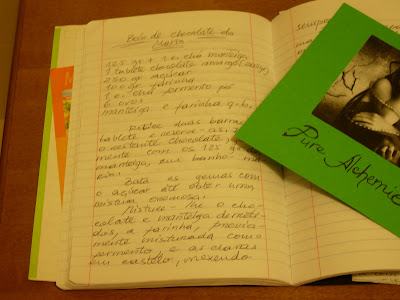 Bolo de chocolate da
Marta
125 gr + 1 c. chá manteiga
1 tablete chocolate amargo (200 gr)
250 gr açúcar
100 gr farinha
1 c. chá fermento pó
6 ovos
manteiga e farinha q.b.
duas barras
tablete e reserve-as.
o restante chocolate,
mente com os 125 gr
manteiga, em banho-ma
ria.
Bata as gemas com
o açúcar até obter uma
mistura cremosa.
Misture-lhe o cho
colate e manteiga derreti
dos, a farinha, previa
mente misturada com o
fermento, e as claras
em castelo, mexendo
Pure Alchemie